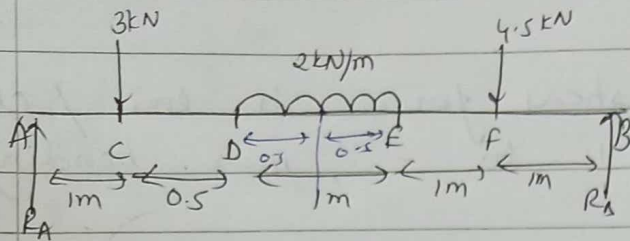 3kN 4.5kN
2kN/m
A C D 0.5 0.5 E F B
1m 0.5 1m 1m 1m
RA RB